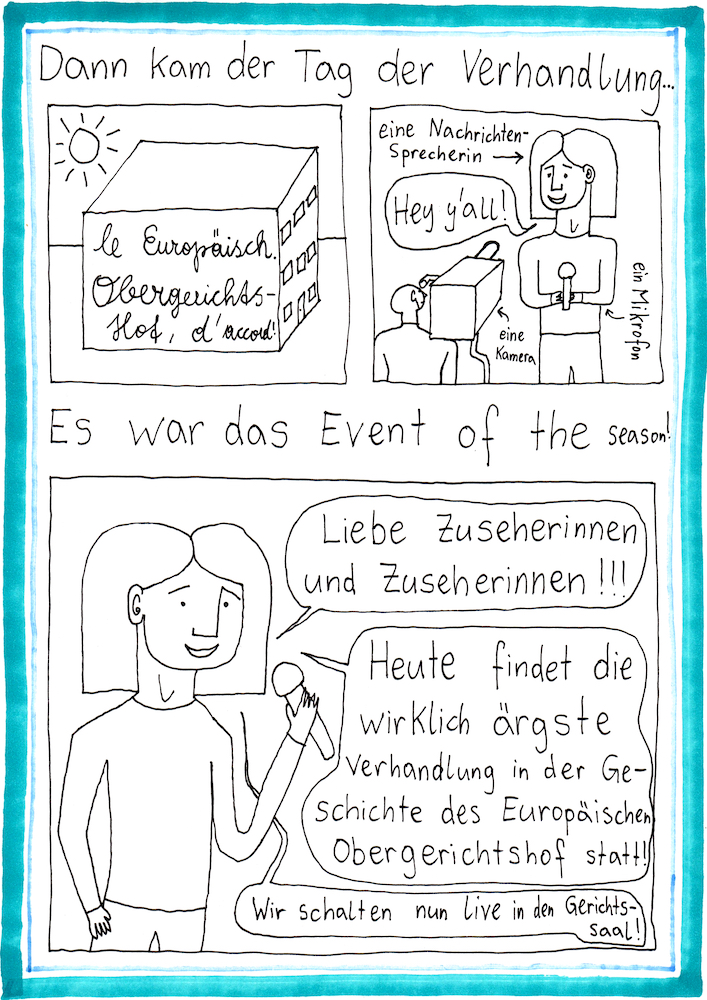 Dann kam der Tag der Verhandlung...
le Europäisch.
Obergerichts-
Hof, d'accord!
eine Nachrichten-
Sprecherin →
Hey y'all!
eine
Kamera
ein Mikrofon
Es war das Event of the season!
Liebe Zuseherinnen
und Zuseherinnen!!!
Heute findet die
wirklich ärgste
Verhandlung in der Ge-
schichte des Europäischen
Obergerichtshof statt!
Wir schalten nun live in den Gerichts-
saal!